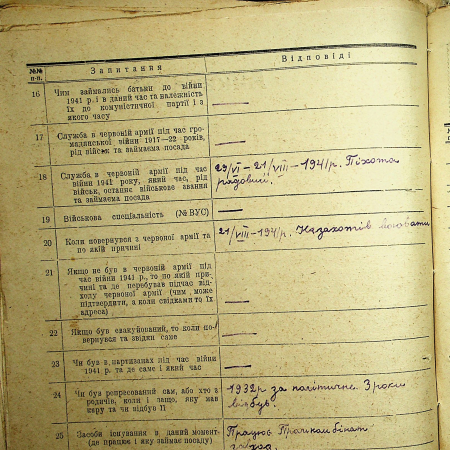 №№ п-п. Запитання Відповіді
16 Чим займались батьки до війни
1941 р. і в даний час та належність
їх до комуністичної партії і з
якого часу —
17 Служба в червоній армії під час гро-
мадянської війни 1917—22 років,
рід військ та займаєма посада —
18 Служба в червоній армії під час
війни 1941 року, який час, рід
військ, останнє військове звання
та займаєма посада
29/VI – 21/VIII – 1941 р. Піхота
рядовий.
19 Військова спеціальність (№ ВУС) —
20 Коли повернувся з червоної армії та
по якій причині
21/VIII – 1941 р. Незахотів воювати
21 Якщо не був в червоній армії під
час війни 1941 р., то по якій при-
чині та де перебував підчас від-
ходу червоної армії (чим може
підтвердити, а коли свідками то їх
адреса) —
22 Якщо був евакуйований, то коли по-
вернувся та звідки саме —
23 Чи був в партизанах під час війни
1941 р. та де саме і який час —
24 Чи був репресований сам, або хто з
родичів, коли і защо, яку мав
кару та чи відбув її
1932 р за політичне. 3 роки
відбув.
25 Засоби існування в даний момент-
(де працює і яку займає посаду)
Працює